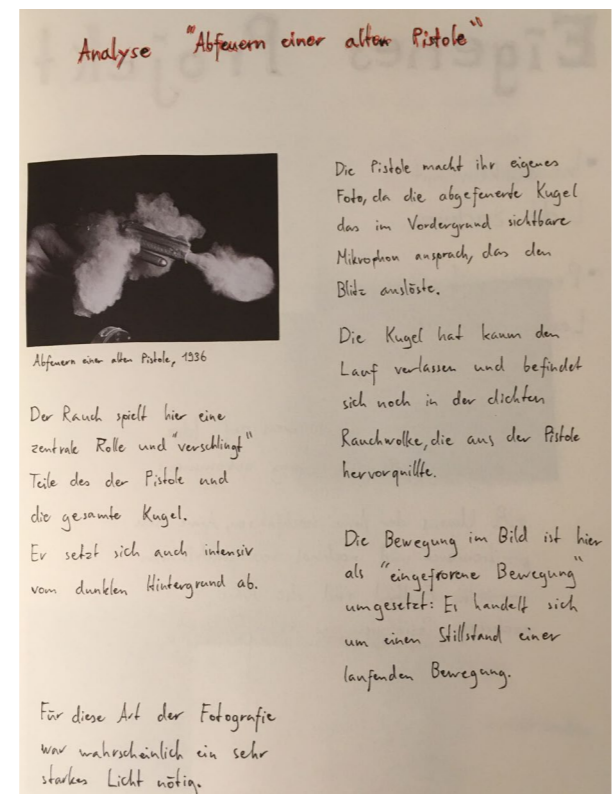 Analyse "Abfeuern einer alten Pistole"
Abfeuern einer alten Pistole, 1936
Der Rauch spielt hier eine
zentrale Rolle und "verschlingt"
Teile des der Pistole und
die gesamte Kugel.
Er setzt sich auch intensiv
vom dunklen Hintergrund ab.
Für diese Art der Fotografie
war wahrscheinlich ein sehr
starkes Licht nötig.
Die Pistole macht ihr eigenes
Foto, da die abgefeuerte Kugel
das im Vordergrund sichtbare
Mikrophon ansprach, das den
Blitz auslöste.
Die Kugel hat kaum den
Lauf verlassen und befindet
sich noch in der dichten
Rauchwolke, die aus der Pistole
hervorquillte.
Die Bewegung im Bild ist hier
als "eingefrorene Bewegung"
umgesetzt: Es handelt sich
um einen Stillstand einer
laufenden Bewegung.